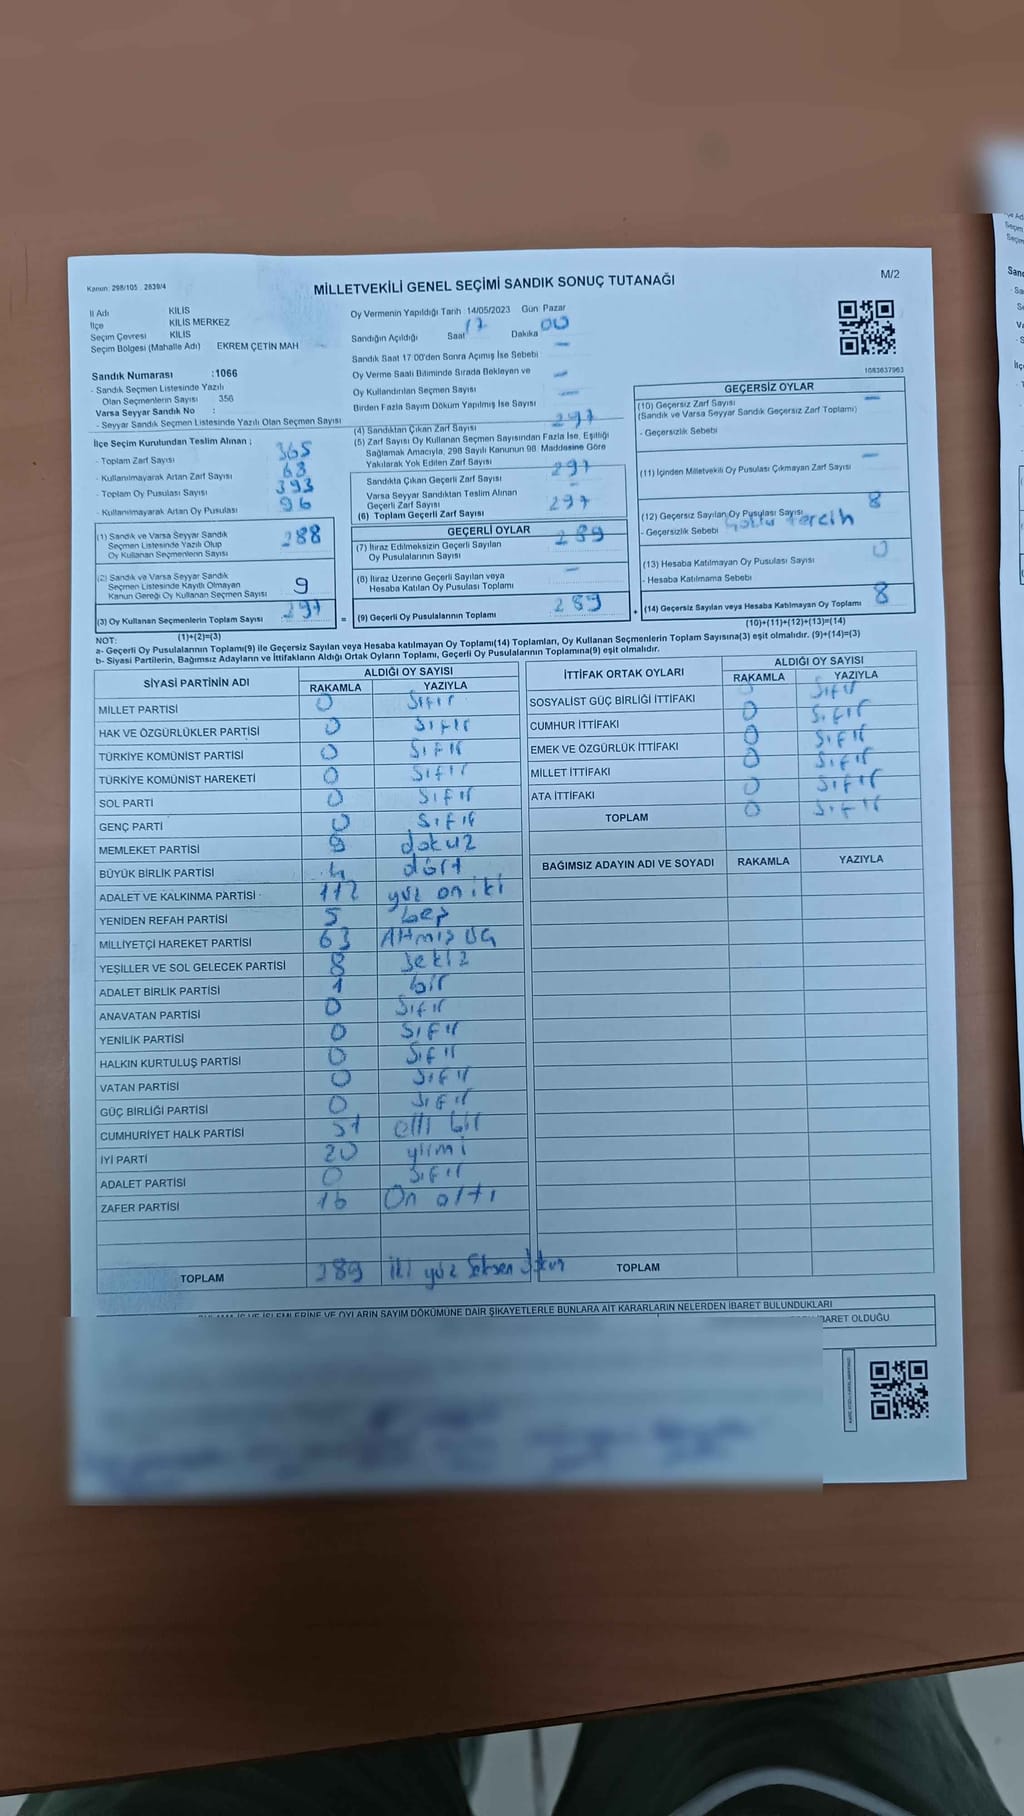 Kanun: 298/105 , 2839/4
MİLLETVEKİLİ GENEL SEÇİMİ SANDIK SONUÇ TUTANAĞI
M/2
İl Adı KİLİS
İlçe KİLİS MERKEZ
Seçim Çevresi KİLİS
Seçim Bölgesi (Mahalle Adı) EKREM ÇETİN MAH
Sandık Numarası :1066
- Sandık Seçmen Listesinde Yazılı
Olan Seçmenlerin Sayısı 356
Varsa Seyyar Sandık No :
- Seyyar Sandık Seçmen Listesinde Yazılı Olan Seçmen Sayısı
İlçe Seçim Kurulundan Teslim Alınan ;
- Toplam Zarf Sayısı 365
- Kullanılmayarak Artan Zarf Sayısı 68
- Toplam Oy Pusulası Sayısı 393
- Kullanılmayarak Artan Oy Pusulası 96
(1) Sandık ve Varsa Seyyar Sandık
Seçmen Listesinde Yazılı Olup
Oy Kullanan Seçmenlerin Sayısı 288
(2) Sandık ve Varsa Seyyar Sandık
Seçmen Listesinde Kayıtlı Olmayan
Kanun Gereği Oy Kullanan Seçmen Sayısı 9
(3) Oy Kullanan Seçmenlerin Toplam Sayısı 297 =
(1)+(2)=(3)
Oy Vermenin Yapıldığı Tarih 14/05/2023 Gün Pazar
Sandığın Açıldığı Saat 17 Dakika 00
Sandık Saat 17 00'den Sonra Açımış İse Sebebi —
Oy Verme Saati Bitiminde Sırada Bekleyen ve
Oy Kullandırılan Seçmen Sayısı —
Birden Fazla Sayım Döküm Yapılmış İse Sayısı —
(4) Sandıktan Çıkan Zarf Sayısı 297
(5) Zarf Sayısı Oy Kullanan Seçmen Sayısından Fazla İse, Eşitliği
Sağlamak Amacıyla, 298 Sayılı Kanunun 98. Maddesine Göre
Yakılarak Yok Edilen Zarf Sayısı —
Sandıkta Çıkan Geçerli Zarf Sayısı 297
Varsa Seyyar Sandıktan Teslim Alınan
Geçerli Zarf Sayısı —
(6) Toplam Geçerli Zarf Sayısı 297
GEÇERLİ OYLAR
(7) İtiraz Edilmeksizin Geçerli Sayılan
Oy Pusulalarının Sayısı 289
(8) İtiraz Üzerine Geçerli Sayılan veya
Hesaba Katılan Oy Pusulası Toplamı —
(9) Geçerli Oy Pusulalarının Toplamı 289 +
1083637963
GEÇERSİZ OYLAR
(10) Geçersiz Zarf Sayısı —
(Sandık ve Varsa Seyyar Sandık Geçersiz Zarf Toplamı)
- Geçersizlik Sebebi
(11) İçinden Milletvekili Oy Pusulası Çıkmayan Zarf Sayısı —
(12) Geçersiz Sayılan Oy Pusulası Sayısı 8
- Geçersizlik Sebebi tercih
(13) Hesaba Katılmayan Oy Pusulası Sayısı 0
- Hesaba Katılmama Sebebi
(14) Geçersiz Sayılan veya Hesaba Katılmayan Oy Toplamı 8
(10)+(11)+(12)+(13)=(14)
NOT:
a- Geçerli Oy Pusulalarının Toplamı(9) ile Geçersiz Sayılan veya Hesaba katılmayan Oy Toplamı(14) Toplamları, Oy Kullanan Seçmenlerin Toplam Sayısına(3) eşit olmalıdır. (9)+(14)=(3)
b- Siyasi Partilerin, Bağımsız Adayların ve İttifakların Aldığı Ortak Oyların Toplamı, Geçerli Oy Pusulalarının Toplamına(9) eşit olmalıdır.
SİYASİ PARTİNİN ADI ALDIĞI OY SAYISI
RAKAMLA YAZIYLA
MİLLET PARTİSİ 0 Sıfır
HAK VE ÖZGÜRLÜKLER PARTİSİ 0 Sıfır
TÜRKİYE KOMÜNİST PARTİSİ 0 Sıfır
TÜRKİYE KOMÜNİST HAREKETİ 0 Sıfır
SOL PARTİ 0 Sıfır
GENÇ PARTİ 0 Sıfır
MEMLEKET PARTİSİ 9 dokuz
BÜYÜK BİRLİK PARTİSİ 4 dört
ADALET VE KALKINMA PARTİSİ 112 yüz on iki
YENİDEN REFAH PARTİSİ 5 beş
MİLLİYETÇİ HAREKET PARTİSİ 63 Altmış üç
YEŞİLLER VE SOL GELECEK PARTİSİ 8 Sekiz
ADALET BİRLİK PARTİSİ 1 bir
ANAVATAN PARTİSİ 0 Sıfır
YENİLİK PARTİSİ 0 Sıfır
HALKIN KURTULUŞ PARTİSİ 0 Sıfır
VATAN PARTİSİ 0 Sıfır
GÜÇ BİRLİĞİ PARTİSİ 0 Sıfır
CUMHURİYET HALK PARTİSİ 51 elli bir
İYİ PARTİ 20 yirmi
ADALET PARTİSİ 0 Sıfır
ZAFER PARTİSİ 16 On altı
TOPLAM 289 iki yüz Seksen dokuz
İTTİFAK ORTAK OYLARI ALDIĞI OY SAYISI
RAKAMLA YAZIYLA
SOSYALİST GÜÇ BİRLİĞİ İTTİFAKI 0 Sıfır
CUMHUR İTTİFAKI 0 Sıfır
EMEK VE ÖZGÜRLÜK İTTİFAKI 0 Sıfır
MİLLET İTTİFAKI 0 Sıfır
ATA İTTİFAKI 0 Sıfır
TOPLAM 0 Sıfır
BAĞIMSIZ ADAYIN ADI VE SOYADI RAKAMLA YAZIYLA
TOPLAM
OYLARIN SAYIM DÖKÜMÜNE DAİR ŞİKAYETLERLE BUNLARA AİT KARARLARIN NELERDEN İBARET BULUNDUKLARI
İBARET OLDUĞU